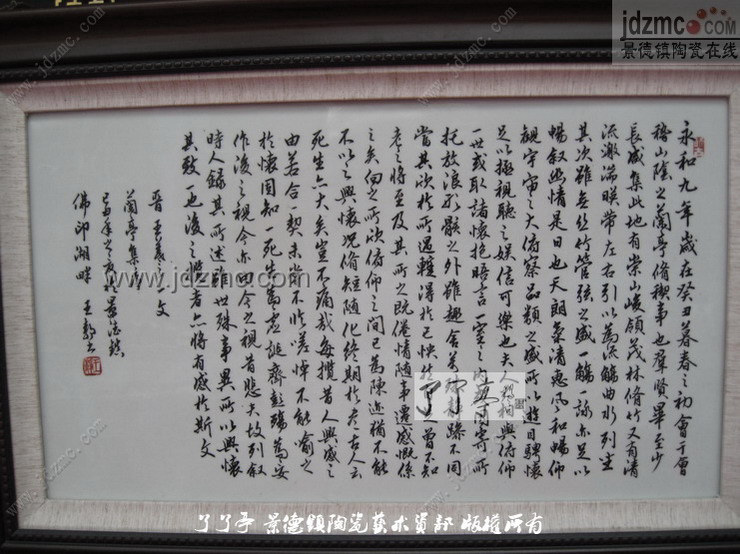 jdzmc.com
景德镇陶瓷在线
永和九年歲在癸丑暮春之初會于會
稽山陰之蘭亭脩稧事也羣賢畢至少
長咸集此地有崇山峻領茂林脩竹又有清
流激湍暎帶左右引以為流觴曲水列坐
其次雖無絲竹管弦之盛一觴一詠亦足以
暢叙幽情是日也天朗氣清惠風和暢仰
觀宇宙之大俯察品類之盛所以遊目騁懷
足以極視聽之娛信可樂也夫人之相與俯仰
一世或取諸懷抱晤言一室之內或因寄所
託放浪形骸之外雖趣舍萬殊靜躁不同
當其欣於所遇輒得於己怏然曾不知
老之將至及其所之既倦情隨事遷感慨係
之矣向之所欣俯仰之間已為陳迹猶不能
不以之興懷況脩短隨化終期於盡古人云
死生亦大矣豈不痛哉每攬昔人興感之
由若合一契未嘗不臨嗟悼不能喻之
於懷固知一死生為虛誕齊彭殤為妄
作後之視今亦由今之視昔悲夫故列叙
時人錄其所述雖世殊事異所以興懷
其致一也後之攬者亦將有感於斯文
晉王羲之文
蘭亭集序
於景德鎮
佛印湖畔 王
www.jdzmc.com
了了亭
了了亭 景德鎮陶瓷藝术資部 版權所有